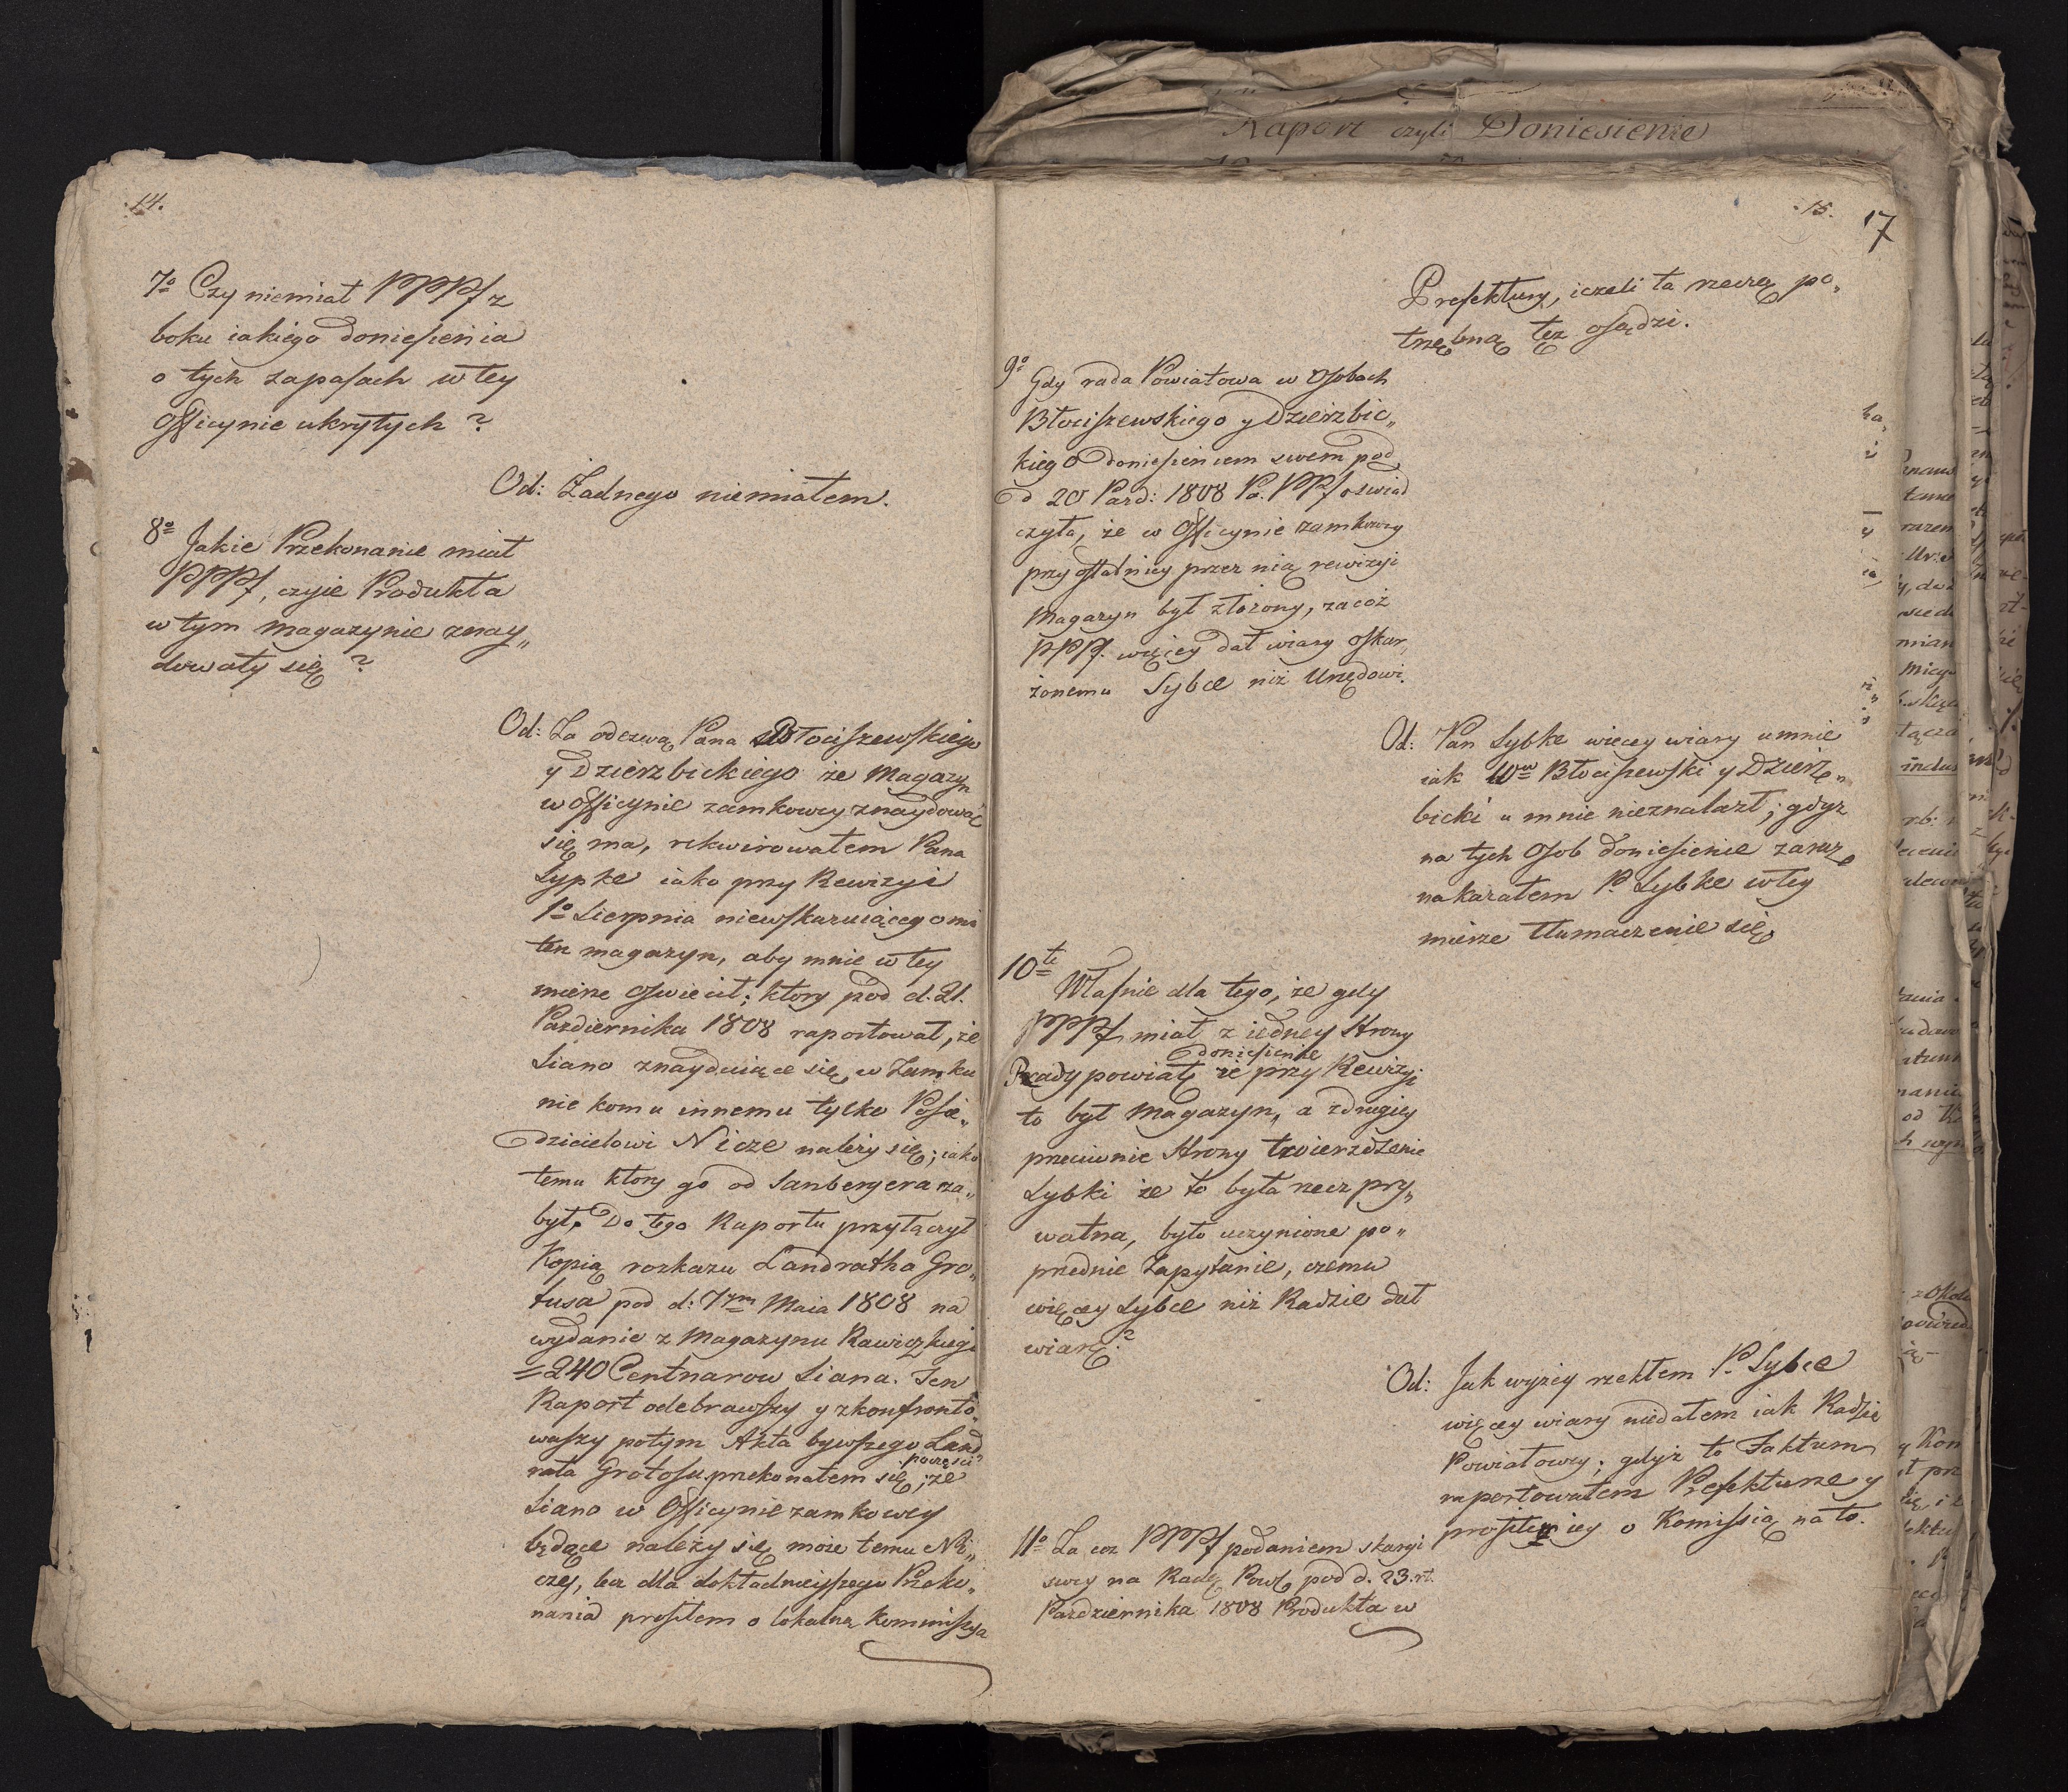 14.
7o Czy niemiał PPPf z
boku iakiego doniesienia
o tych zapasach w tey
Officynie ukrytych ?
Od: Żadnego niemiałem.
8o Jakie Przekonanie miał
PPPf, czyie Produkta
w tym magazynie znay„
dowały się ?
Od: Za odezwą Pana Błociszewskiego
y Dzierzbickiego że Magazyn
w officynie zamkowey znaydować
się ma, rekwirowałem Pana
Lypke iako przy Rewizyi
1o Sierpnia niewskazuiącego mi
ten magazyn, aby mnie w tey
mierze oswiecił; ktory pod d. 21.
Pazdziernika 1808 raportował, że
Siano znayduiące się w Zamku
nie komu innemu tylko Posie„
dzicielowi Nicze należy się; iako
temu ktory go od Sanbergera na„
był. Do tego Raportu przyłączył
Kopią rozkazu Landratha Gro„
tusa pod d: 7ym Maia 1808 na
wydanie z Magazynu Rawiczkiego
=240 Centnarow Siana. Ten
Raport odebrawszy y zkonfronto„
waszy potym Akta bywszego Land
rata Grotosu przekonałem się poczęści; że
Siano w Officynie zamkowey
będące należy się może temu Ni„
czej, lecz dla dokładnieyszego Przeko„
nania prosiłem o lokalną Kommissya
Raport czyli Doniesienie
15.
17
Prefektury, iezeli ta rzeczą po„
trzebną też osądzi.
9o Gdy rada Powiatowa w Osobach
Błociszewskiego y Dzierzbic„
kiego doniesieniem swem pod
d 20 Pazd: 1808 Pa. PPf oswiad
czyła, że w Officynie zamkowey
przy ostatniey przez nią rewizyi
Magazyn był złożony, za coż
PPPf. więcey dał wiary oskar„
żonemu Lybce niż Urzędowi.
Od: Pan Lybke wiecey wiary umnie
iak Błociszewski y Dzierz„
bicki u mnie nieznalazł; gdyz
na tych Osob doniesienie zaraz
nakazałem P. Lybke w tey
mierze tłumaczenie się
10te Własnie dla tego, że gdy
PPPf miał z iedney Strony
Rady powiat: doniesienie że przy Rewizyi
to był Magazyn, a zdrugiey
przeciwnie Strony twierdzenie
Lybki że to była rzecz pry„
watna, było uczynione po„
przednie Zapytanie, czemu
więcey Lybce niż Radzie dał
wiarę?
Od: Jak wyzey rzekłem P. Lybce
więcey wiary niedałem iak Radzie
Powiatowey; gdyż to Faktum
raportowałem Prefekturze y
prosiłem iey o Komissią na to.
11o Za coz PPPf podaniem skargi
swey na Radę Pow: pod d. 23.
Pazdziernika 1808 Produkta w